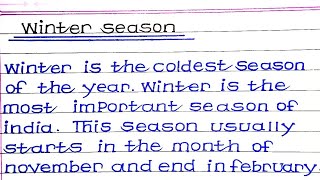 Winter Season
Winter is the coldest season
of the year. Winter is the
most important season of
india. This season usually
starts in the month of
november and end in february.